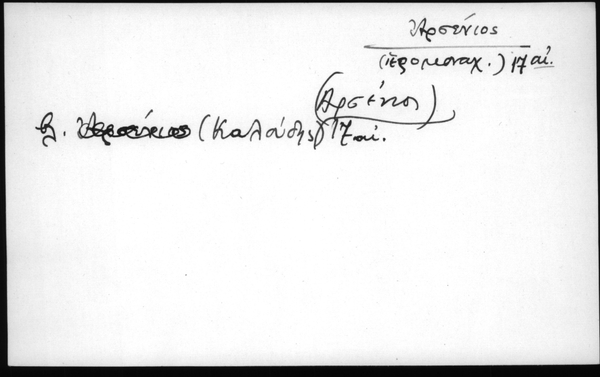 Ἀρσένιος
(ἱερομοναχ.) 17 αἰ.
(Ἀρσένιος)
βλ. Ἀρσένιος (Καλούδης) 17 αἰ.